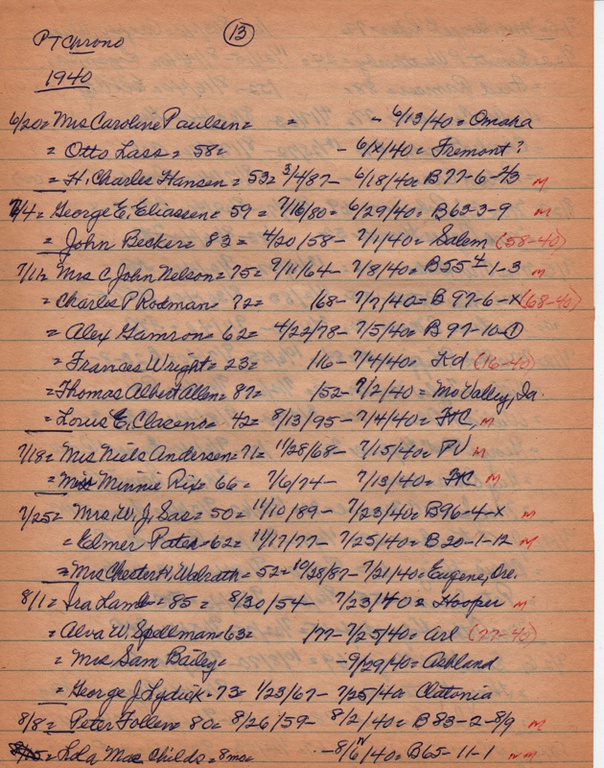 PT Chrono
13
1940
6/20 = Mrs Caroline Paulsen = = - 6/13/40 = Omaha
= Otto Lass = 58 = - 6/X/40 = Fremont ?
= H. Charles Hansen = 53 = 3/4/87 - 6/18/40 = B77-6-2/3 M
7/4 = George E. Eliassen = 59 = 7/16/80 = 6/29/40 = B63-3-9 M
= John Becker = 83 = 4/20/58 - 7/1/40 = Salem (58-40)
7/11 = Mrs C John Nelson = 75 = 9/11/64 - 7/8/40 = B55 4-1-3 M
= Charles P Rodman = 72 = /68 - 7/7/40 = B 97-6-X (68-40)
= Alex Gamron = 62 = 4/22/78 - 7/5/40 = B97-10-1
= Frances Wright = 23 = /16 - 7/4/40 = Kd (16-40)
= Thomas Albert Allen = 87 = /52 - 7/2/40 = Mo Valley, Ia.
= Louis E. Clasen = 42 = 8/13/95 - 7/4/40 = M
7/18 = Mrs Niels Andersen = 71 = 11/28/68 - 7/15/40 = PV M
= Minnie Rix = 66 = 7/6/74 - 7/13/40 = M
7/25 = Mrs. W. J. Sas = 50 = 11/10/89 - 7/23/40 = B96-4-X M
= Elmer Pates = 62 = 11/17/77 - 7/25/40 = B20-1-12 M
= Mrs Chester H. Walrath = 52 = 10/28/87 - 7/21/40 = Eugene, Ore.
8/1 = Ira Lamb = 85 = 8/30/54 - 7/23/40 = Hooper M
= Alva W. Spellman = 63 = /77 - 7/25/40 = Arl (77-40)
= Mrs Sam Bailey = - 9/29/40 = Ashland
= George J. Lydick = 73 = 1/23/67 - 7/25/40 = Clatonia
8/8 = Peter Follen = 80 = 8/26/59 - 8/2/40 = B83-2-8/9 M
8/15 = Lola Mae Childs = 8mo = - 8/6/40 = B65-11-1 nm